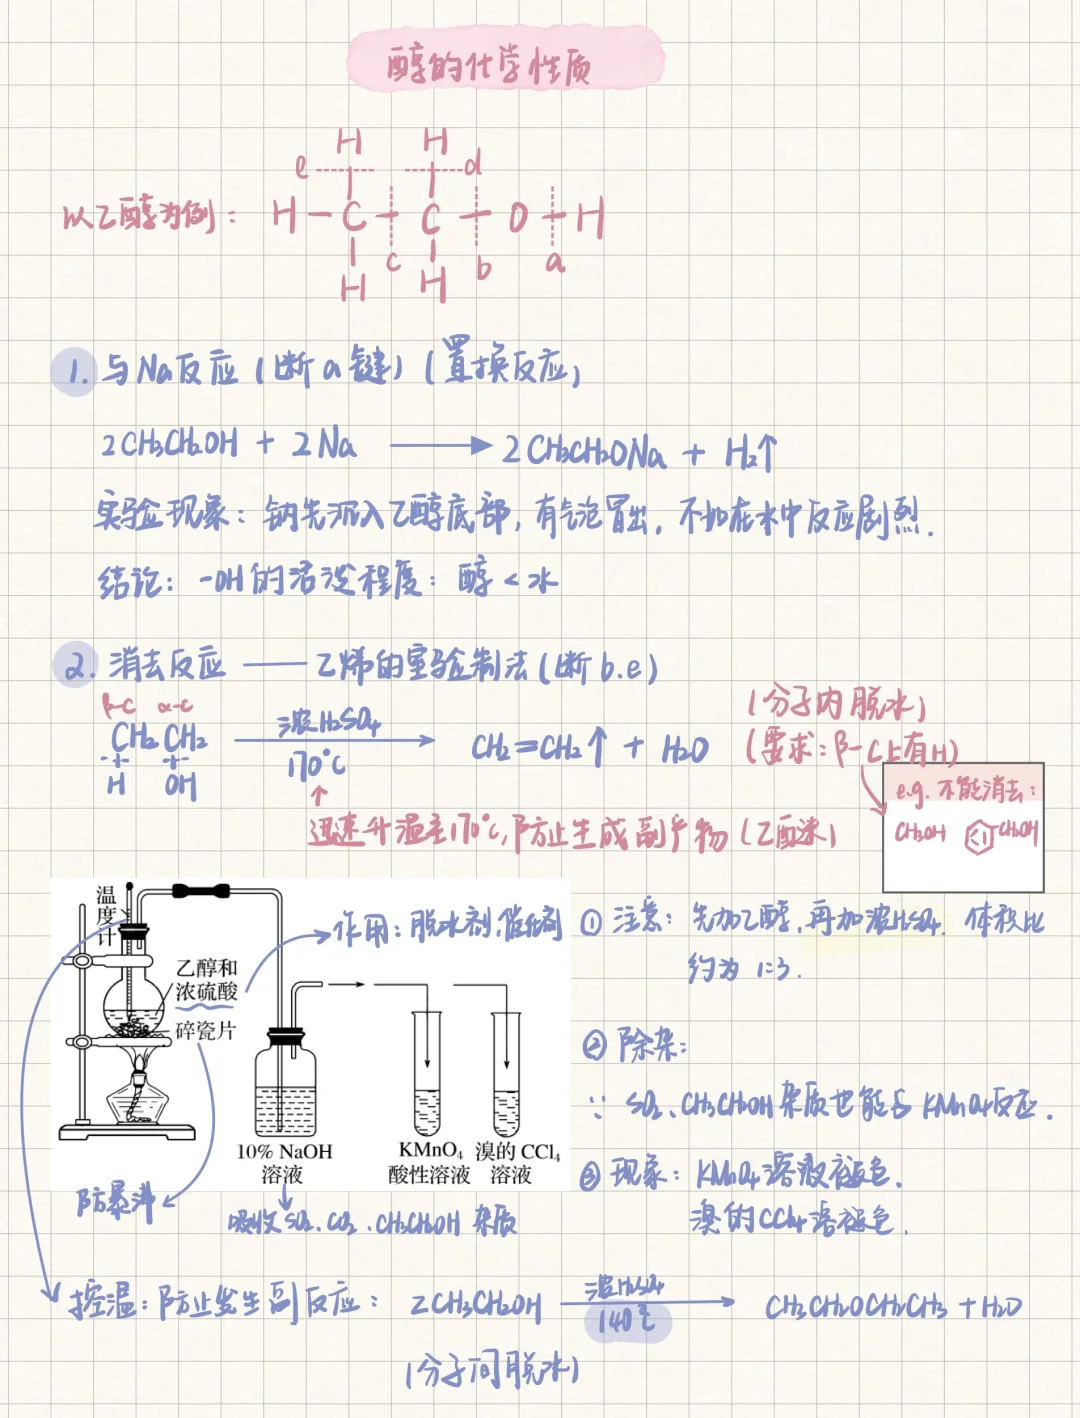 醇的化学性质
以乙醇为例:
H H
e d
H-C-C-O-H
c b a
H H
1. 与Na反应(断a键)(置换反应)
2CH3CH2OH + 2Na → 2CH3CH2ONa + H2↑
实验现象: 钠先沉入乙醇底部, 有气泡冒出, 不如在水中反应剧烈.
结论: -OH的活泼程度: 醇<水
2. 消去反应 —— 乙烯的实验制法(断b.e)
β-C α-C
CH2 CH2
H OH
浓H2SO4
170℃
CH2=CH2↑ + H2O
(分子内脱水)
(要求: β-C上有H)
e.g. 不能消去:
CH3OH CH2OH
迅速升温至170℃, 防止生成副产物(乙醚)
温度计
乙醇和
浓硫酸
碎瓷片
作用: 脱水剂, 催化剂
10% NaOH
溶液
KMnO4
酸性溶液
溴的 CCl4
溶液
防暴沸
吸收SO2、CO2、CH3CH2OH 杂质
① 注意: 先加乙醇, 再加浓H2SO4. 体积比
约为 1:3.
② 除杂:
∵ SO2、CH3CH2OH 杂质也能与 KMnO4反应.
③ 现象: KMnO4溶液褪色.
溴的CCl4溶褪色.
控温: 防止发生副反应: 2CH3CH2OH 浓H2SO4 140℃ → CH3CH2OCH2CH3 + H2O
(分子间脱水)